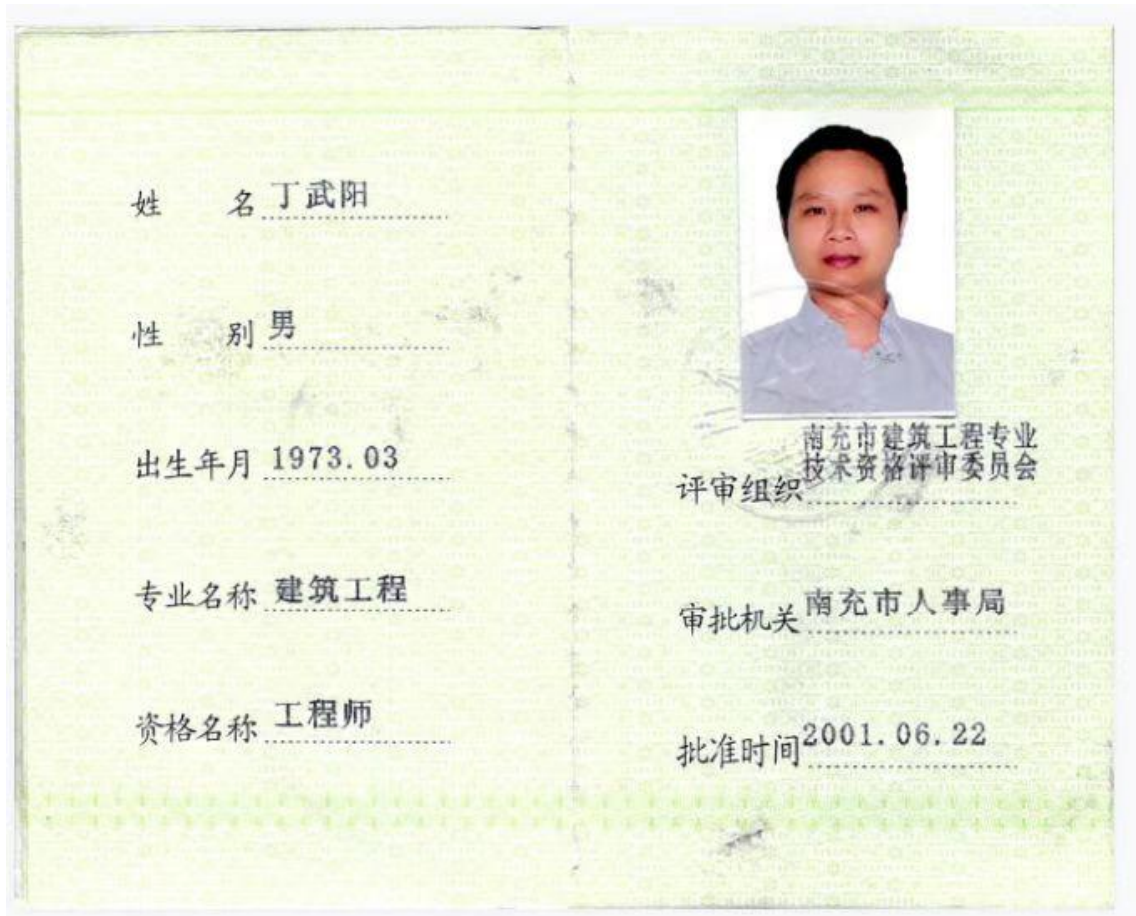 姓 名 丁武阳
性 别 男
出生年月 1973.03
专业名称 建筑工程
资格名称 工程师
南充市建筑工程专业
评审组织 技术资格评审委员会
审批机关 南充市人事局
批准时间 2001.06.22